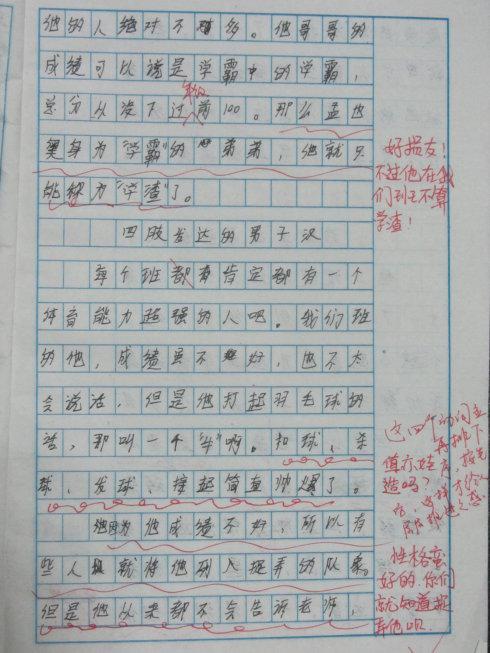 他的人绝对不多。他哥哥的
成绩可以说是学霸中的学霸，
年级
总分从没下过前100。那么孟也
奥身为"学霸"的弟弟，他就只
能称为"学渣"了。
四肢发达的男子汉
每个班都有肯定都有一个
体育能力超强的人吧。我们班
的他，成绩虽不好，也不太
会说话，但是他打起羽毛球的
话，那叫一个"牛"啊。扣球、杀
球、发球、接起简直帅爆了。
他因为他成绩不好，所以有
些人就将他列入捉弄的队象。
但是他从来都不会告诉老师，
好损友！
不过他在我
们班不算
学渣！
这四个动词
再排下
性格蛮
好的，你们
就知道捉
弄他呗